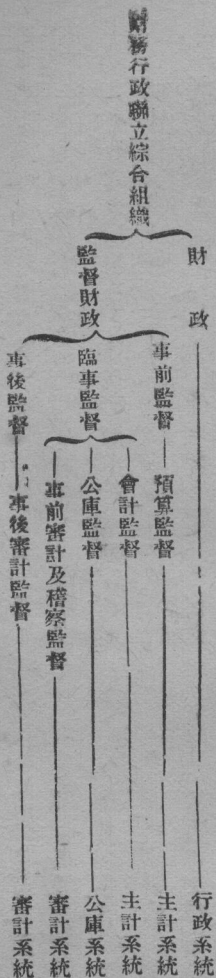 財務行政聯立綜合組織
財政
行政系統
監督財政
事前監督
預算監督
主計系統
臨事監督
會計監督
主計系統
公庫監督
公庫系統
事前審計及稽察監督
審計系統
事後監督
事後審計監督
審計系統